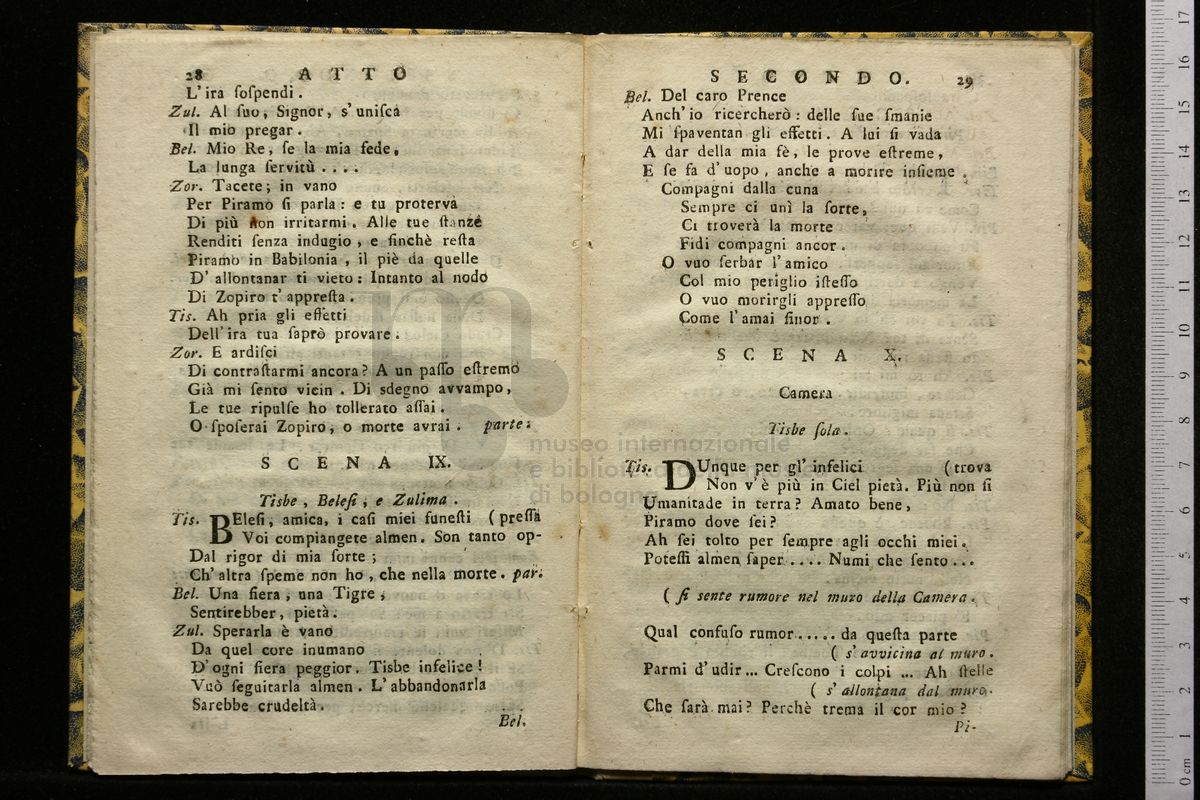 28 ATTO
L'ira ſoſpendi.
Zul. Al ſuo, Signor, s'uniſca
Il mio pregar.
Bel. Mio Re, ſe la mia fede,
La lunga ſervitù ....
Zor. Tacete; in vano
Per Piramo ſi parla: e tu proterva
Di più non irritarmi. Alle tue ſtanze
Renditi ſenza indugio, e finchè reſta
Piramo in Babilonia, il piè da quelle
D'allontanar ti vieto: Intanto al nodo
Di Zopiro t'appreſta.
Tis. Ah pria gli effetti
Dell'ira tua ſaprò provare.
Zor. E ardiſci
Di contraſtarmi ancora? A un paſſo eſtremo
Già mi ſento vicin. Di sdegno avvampo,
Le tue ripulſe ho tollerato aſſai.
O ſpoſerai Zopiro, o morte avrai. parte.
SCENA IX.
Tisbe, Beleſi, e Zulima.
Tis. BEleſi, amica, i caſi miei funeſti (preſſa
Voi compiangete almen. Son tanto op-
Dal rigor di mia ſorte;
Ch'altra ſpeme non ho, che nella morte. par.
Bel. Una fiera, una Tigre,
Sentirebber, pietà.
Zul. Sperarla è vano
Da quel core inumano
D'ogni fiera peggior. Tisbe infelice!
Vuò ſeguitarla almen. L'abbandonarla
Sarebbe crudeltà.
Bel.
SECONDO. 29
Bel. Del caro Prence
Anch'io ricercherò: delle ſue ſmanie
Mi ſpaventan gli effetti. A lui ſi vada
A dar della mia fè, le prove eſtreme,
E ſe fa d'uopo, anche a morire inſieme.
Compagni dalla cuna
Sempre ci unì la ſorte,
Ci troverà la morte
Fidi compagni ancor.
O vuo ſerbar l'amico
Col mio periglio iſteſſo
O vuo morirgli appreſſo
Come l'amai finor.
SCENA X.
Camera
Tisbe ſola.
Tis. DUnque per gl'infelici (trova
Non v'è più in Ciel pietà. Più non ſi
Umanitade in terra? Amato bene,
Piramo dove ſei?
Ah ſei tolto per ſempre agli occhi miei.
Poteſſi almen ſaper .... Numi che ſento...
(ſi sente rumore nel muro della Camera.
Qual confuſo rumor ..... da queſta parte
(s'avvicina al muro.
Parmi d'udir... Creſcono i colpi ... Ah ſtelle
(s'allontana dal muro.
Che ſarà mai? Perchè trema il cor mio?
Pi-
museo internazionale
e biblio
di bologna
17
16
15
14
13
12
11
10
9
8
7
6
5
4
3
2
1
0 cm